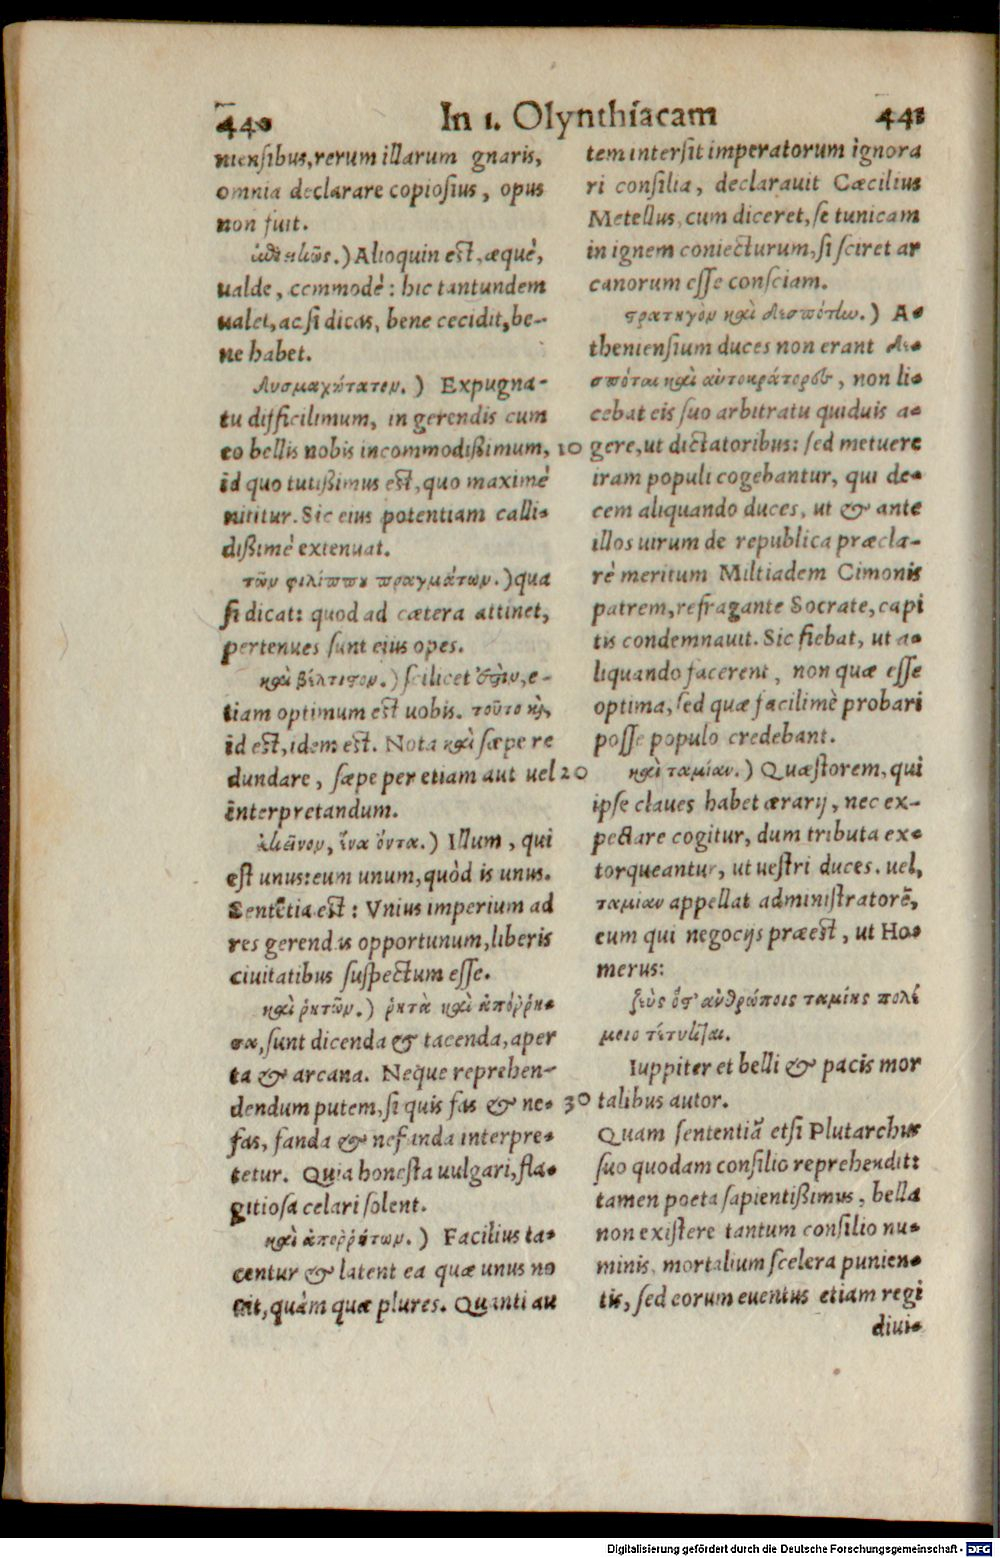 440 In 1. Olynthiacam 441
niensibus, rerum illarum gnaris,
omnia declarare copiosius, opus
non fuit.
ἐπιεικῶς.) Alioquin est, æquè,
ualde, commodè: hic tantundem
ualet, ac si dicas, bene cecidit, be-
ne habet.
Δυσμαχώτατον.) Expugna-
tu difficilimum, in gerendis cum
eo bellis nobis incommodißimum,
id quo tutißimus est, quo maximè
nititur. Sic eius potentiam calli-
dißimè extenuat.
τῶν φιλίππου πραγμάτων.) qua
si dicat: quod ad cætera attinet,
pertenues sunt eius opes.
καὶ βέλτιστον.) scilicet ἐστὶν, e-
tiam optimum est uobis. τοῦτο καὶ,
id est, idem est. Nota καὶ sæpe re
dundare, sæpe per etiam aut uel
interpretandum.
ἐκεῖνον, ἕνα ὄντα.) Illum, qui
est unus: eum unum, quòd is unus.
Sentẽtia est: Vnius imperium ad
res gerendas opportunum, liberis
ciuitatibus suspectum esse.
καὶ ῥητῶν.) ῥητὰ καὶ ἀπόῤῥη-
τα, sunt dicenda & tacenda, aper
ta & arcana. Neque reprehen-
dendum putem, si quis fas & ne-
fas, fanda & nefanda interpre-
tetur. Quia honesta uulgari, fla-
gitiosa celari solent.
καὶ ἀποῤῥήτων.) Facilius ta-
centur & latent ea quæ unus no
uit, quàm quæ plures. Quanti au
10
20
30
tem intersit imperatorum ignora
ri consilia, declarauit Cæcilius
Metellus, cum diceret, se tunicam
in ignem coniecturum, si sciret ar
canorum esse consciam.
στρατηγὸν καὶ δεσπότην.) A-
theniensium duces non erant δε-
σπόται καὶ αὐτοκράτορες, non li-
cebat eis suo arbitratu quiduis a-
gere, ut dictatoribus: sed metuere
iram populi cogebantur, qui de-
cem aliquando duces, ut & ante
illos uirum de republica præcla-
rè meritum Miltiadem Cimonis
patrem, refragante Socrate, capi
tis condemnauit. Sic fiebat, ut a-
liquando facerent, non quæ esse
optima, sed quæ facilimè probari
posse populo credebant.
καὶ ταμίαν.) Quæstorem, qui
ipse claues habet ærarij, nec ex-
pectare cogitur, dum tributa ex-
torqueantur, ut uestri duces. uel,
ταμίαν appellat administratorẽ,
eum qui negocijs præest, ut Ho-
merus:
ζεὺς ὅς τ' ἀνθρώποις ταμίης πολέ
μοιο τέτυκται.
Iuppiter et belli & pacis mor
talibus autor.
Quam sententiã etsi Plutarchus
suo quodam consilio reprehendit:
tamen poeta sapientißimus, bella
non existere tantum consilio nu-
minis, mortalium scelera punien-
tis, sed eorum euentus etiam regi
diui-
Digitalisierung gefördert durch die Deutsche Forschungsgemeinschaft - DFG